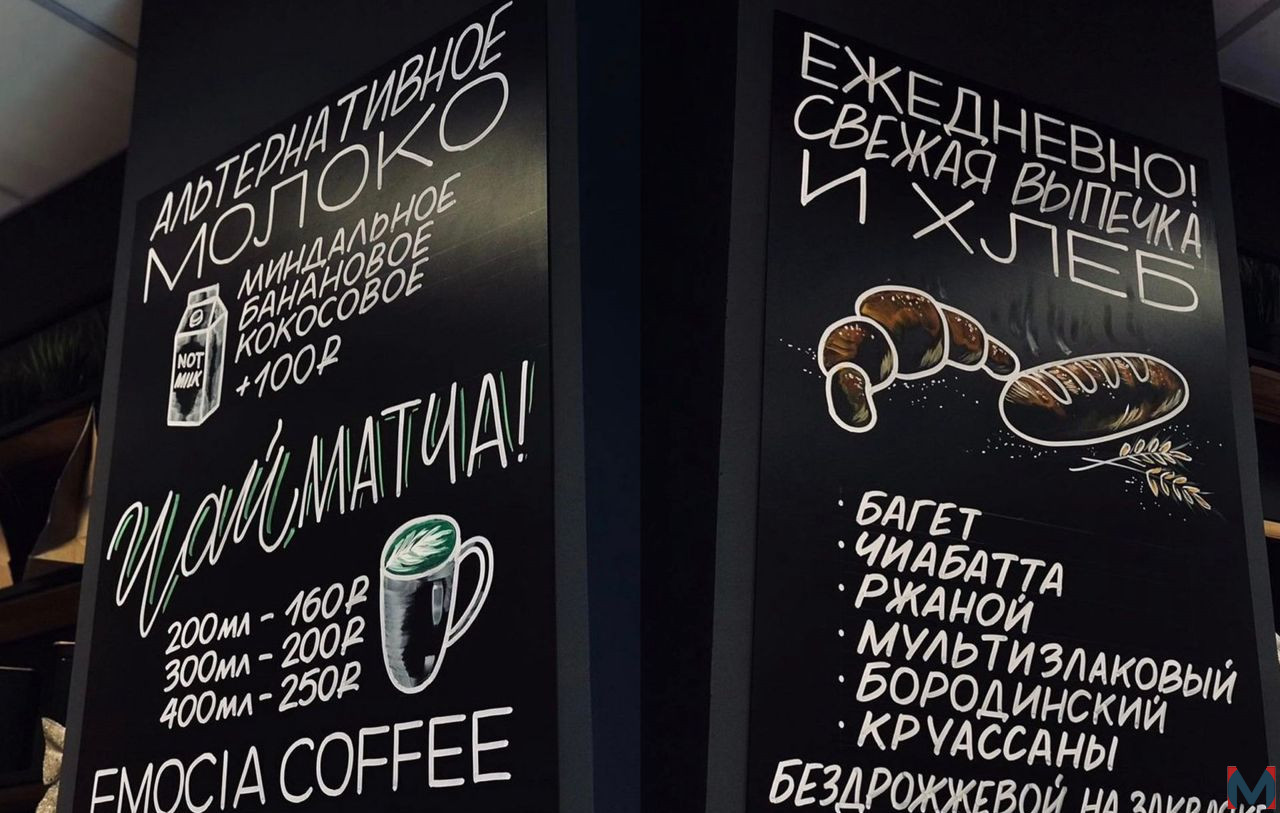 АЛЬТЕРНАТИВНОЕ
МОЛОКО
МИНДАЛЬНОЕ
БАНАНОВОЕ
КОКОСОВОЕ
+100₽
NOT
MILK
Чай МАТЧА!
200мл - 160₽
300мл - 200₽
400мл - 250₽
EMOCIA COFFEE
ЕЖЕДНЕВНО!
СВЕЖАЯ ВЫПЕЧКА
И ХЛЕБ
· БАГЕТ
· ЧИАБАТТА
· РЖАНОЙ
· МУЛЬТИЗЛАКОВЫЙ
· БОРОДИНСКИЙ
· КРУАССАНЫ
БЕЗДРОЖЖЕВОЙ НА ЗАКВАСКЕ
M